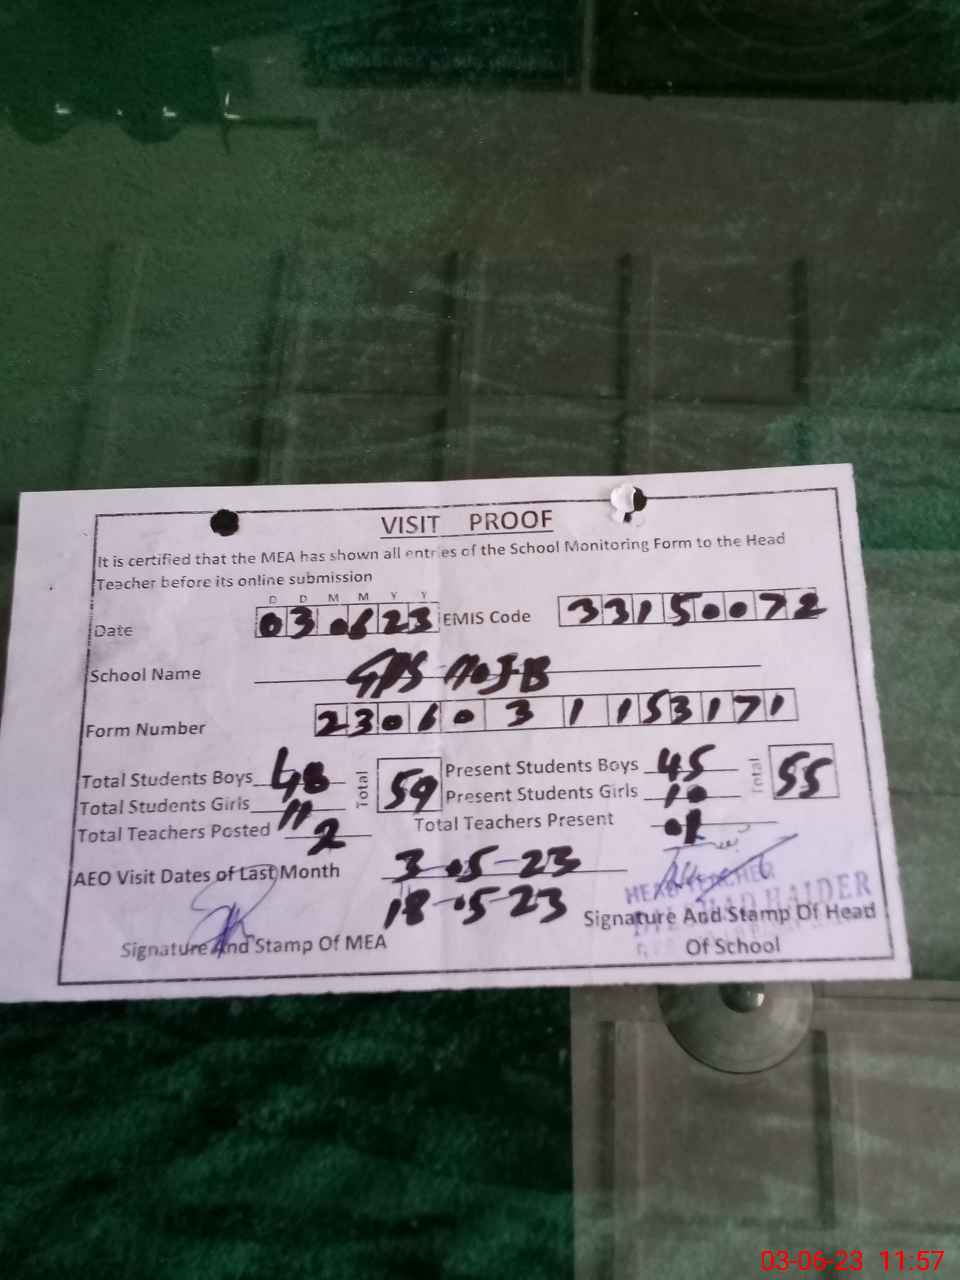 VISIT PROOF
It is certified that the MEA has shown all entries of the School Monitoring Form to the Head
Teacher before its online submission
D D M M Y Y
Date 03 06 23 EMIS Code 33150072
School Name GPS
Form Number 230603 1 153171
Total Students Boys 48 Total 59 Present Students Boys 45 Total 55
Total Students Girls 11 Present Students Girls 10
Total Teachers Posted 2 Total Teachers Present 01
AEO Visit Dates of Last Month 3-05-23
18-05-23
HEAD TEACHER
HAIDER
Signature And Stamp Of MEA
Signature And Stamp Of Head
Of School
03-06-23 11:57